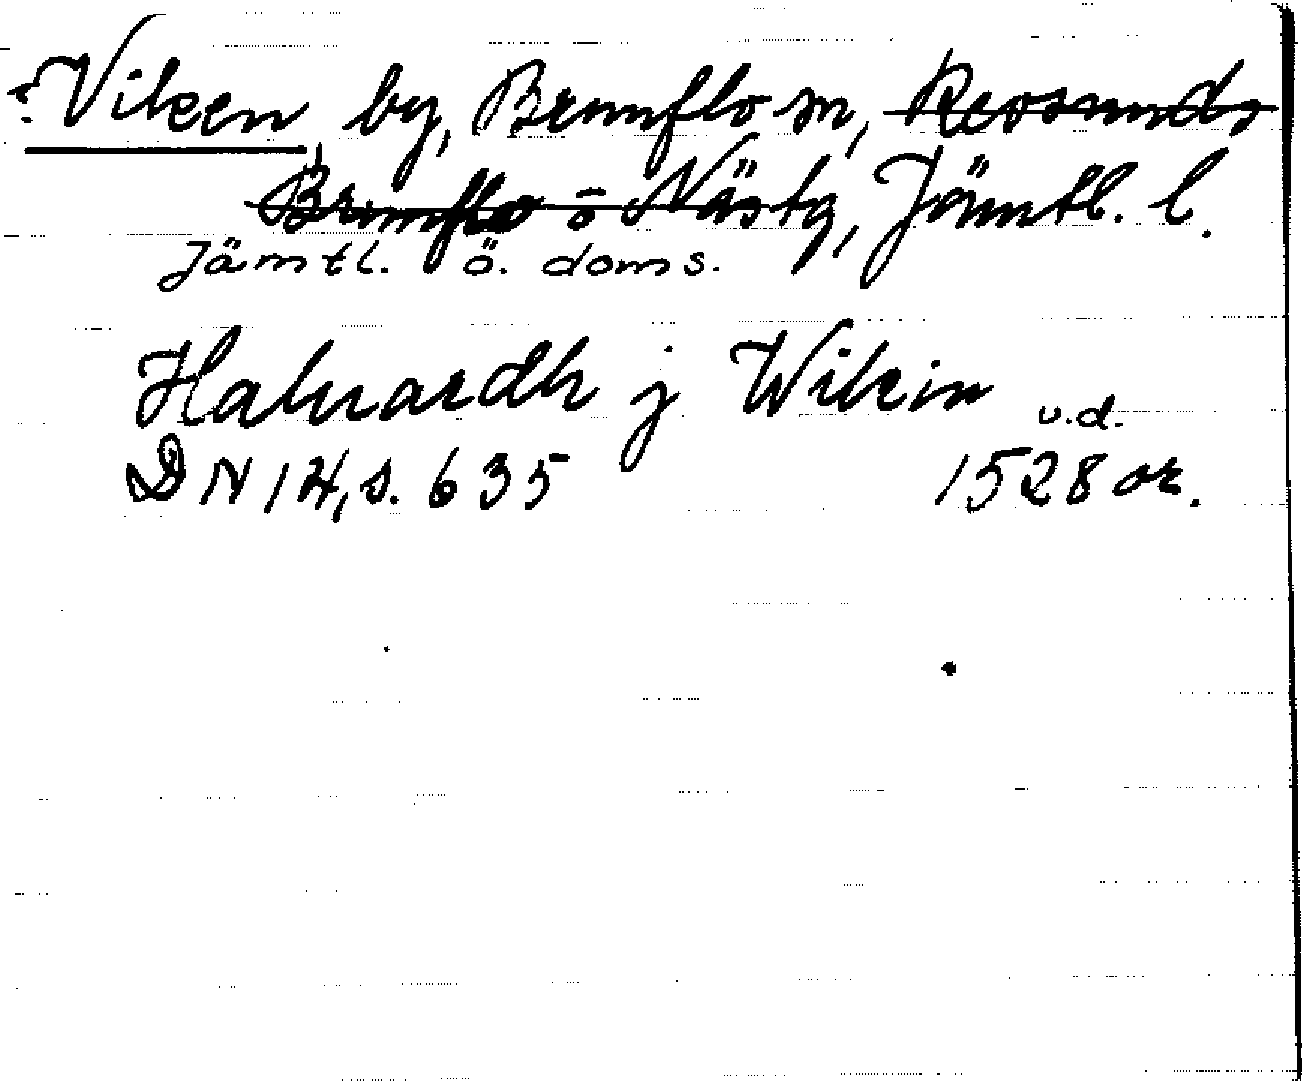 ? Viken, by, Brunflo sn, Revsunds,
Brunflo o Näs tg, Jämtl. l.
Jämtl. ö. doms.
Haluardh j Wikin u.d.
DN 14, s. 635 1528 or.